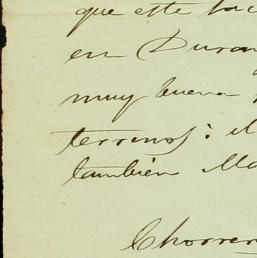 que este
en Duran
muy buena
terrenos: el
también Ma
Chorrer